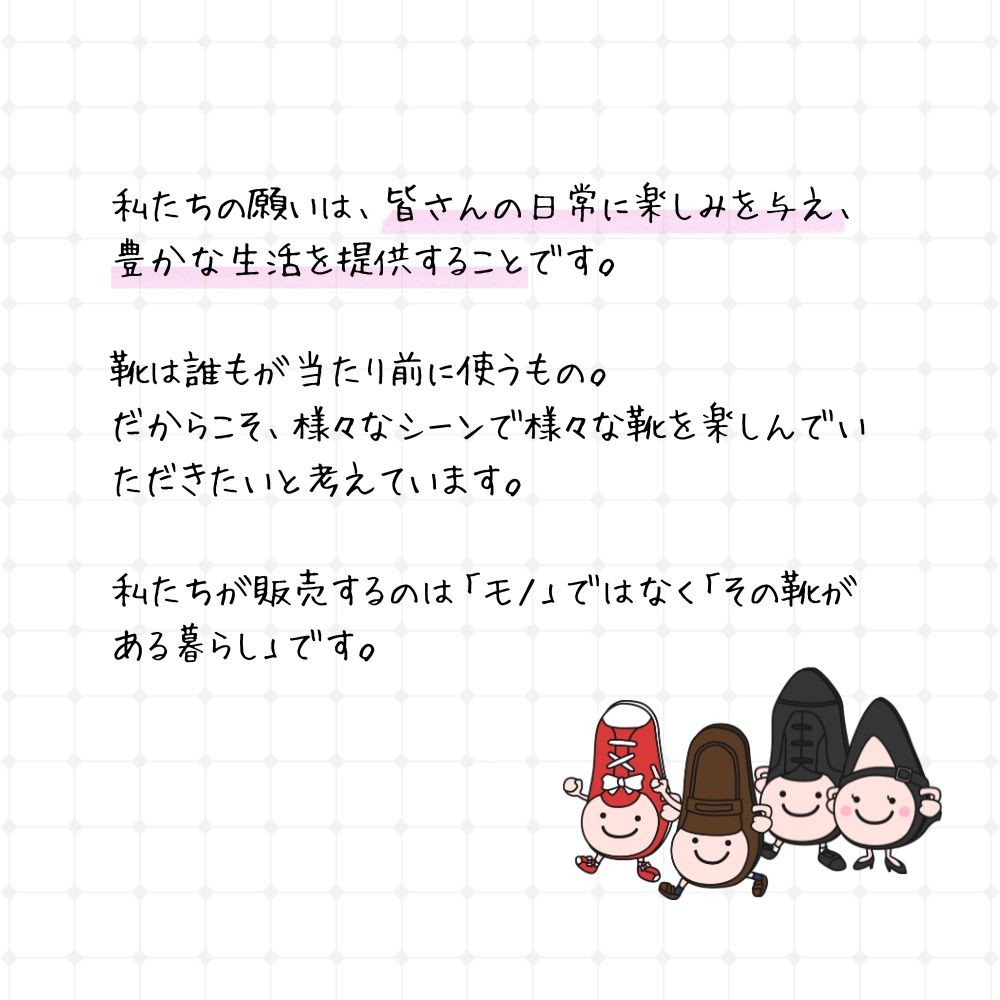 私たちの願いは、皆さんの日常に楽しみを与え、
豊かな生活を提供することです。
靴は誰もが当たり前に使うもの。
だからこそ、様々なシーンで様々な靴を楽しんでい
ただきたいと考えています。
私たちが販売するのは「モノ」ではなく「その靴が
ある暮らし」です。